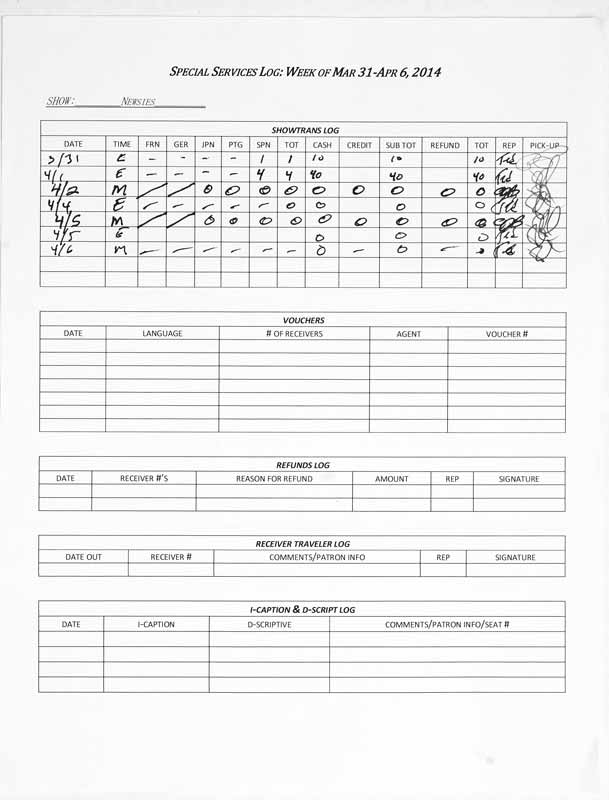 SPECIAL SERVICES LOG: WEEK OF MAR 31-APR 6, 2014
SHOW: NEWSIES
SHOWTRANS LOG
DATE TIME FRN GER JPN PTG SPN TOT CASH CREDIT SUB TOT REFUND TOT REP PICK-UP
3/31 E - - - - 1 1 10 10 10 Ted
4/1 E - - - - 4 4 40 40 40 Ted
4/2 M / / 0 0 0 0 0 0 0 0 0
4/4 E - - - - - 0 0 0 0 Ted
4/5 M / / 0 0 0 0 0 0 0 0 0
4/5 E 0 0 0 Ted
4/6 M - - - - - - 0 - 0 - 0 Ted
VOUCHERS
DATE LANGUAGE # OF RECEIVERS AGENT VOUCHER #
REFUNDS LOG
DATE RECEIVER #'S REASON FOR REFUND AMOUNT REP SIGNATURE
RECEIVER TRAVELER LOG
DATE OUT RECEIVER # COMMENTS/PATRON INFO REP SIGNATURE
I-CAPTION & D-SCRIPT LOG
DATE I-CAPTION D-SCRIPTIVE COMMENTS/PATRON INFO/SEAT #